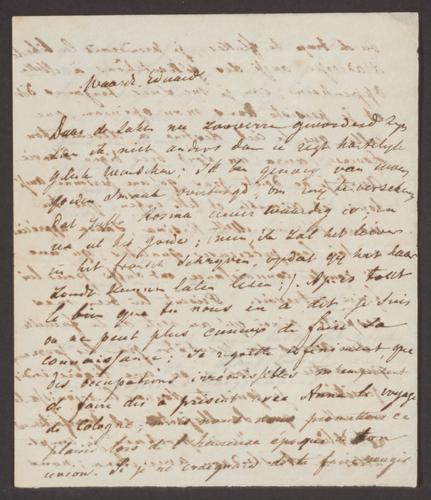 Waarde Eduard
Daar de zaken nu zooverre gevorderd zijn
kan ik niet anders dan u regt hartelijk
geluk wenschen; Ik ben genoeg van uwen
goeden smaak overtuigd, om mij te verzekeren
Dat Jufvr Rosina uwer waardig is; en
na al het goede; (nun, ik zal het liever
in het fransch schrijven, opdat gij het haar
zoudt kunnen laten lezen;). Après tout
le bien que tu nous en a dit je suis
on ne peut plus curieux de faire sa
connaissance: Je regrette infiniment que
des occupations indispensables m'empêchent
de faire dès à présent avec Anna le voyage
de Cologne; mais nous nous promettons ce
plaisir lors de l'heureuse époque de ton
union. Si je ne craignais de te faire rougir